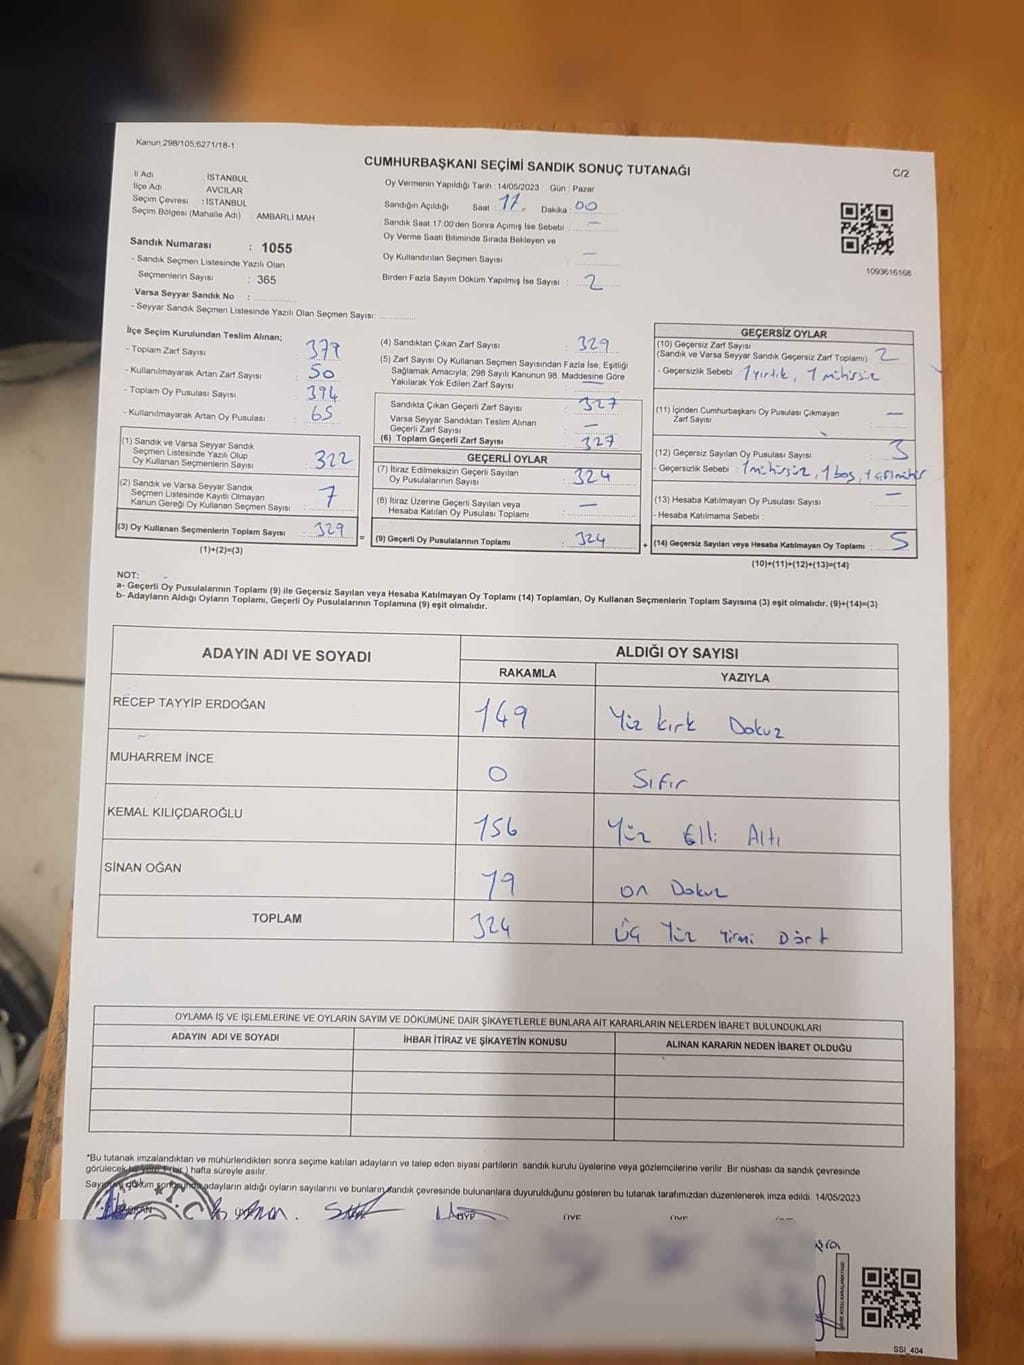 Kanun.298/105,6271/18-1
CUMHURBAŞKANI SEÇİMİ SANDIK SONUÇ TUTANAĞI
C/2
İl Adı : İSTANBUL
İlçe Adı AVCILAR
Seçim Çevresi : İSTANBUL
Seçim Bölgesi (Mahalle Adı) : AMBARLI MAH
Oy Vermenin Yapıldığı Tarih : 14/05/2023 Gün : Pazar
Sandığın Açıldığı Saat : 17 Dakika : 00
Sandık Saat 17:00'den Sonra Açımış İse Sebebi : —
Oy Verme Saati Bitiminde Sırada Bekleyen ve
Oy Kullandırılan Seçmen Sayısı : —
Birden Fazla Sayım Döküm Yapılmış İse Sayısı : 2
1093616168
Sandık Numarası : 1055
- Sandık Seçmen Listesinde Yazılı Olan
Seçmenlerin Sayısı : 365
Varsa Seyyar Sandık No :
- Seyyar Sandık Seçmen Listesinde Yazılı Olan Seçmen Sayısı:
İlçe Seçim Kurulundan Teslim Alınan;
- Toplam Zarf Sayısı : 379
- Kullanılmayarak Artan Zarf Sayısı : 50
- Toplam Oy Pusulası Sayısı : 394
- Kullanılmayarak Artan Oy Pusulası : 65
(1) Sandık ve Varsa Seyyar Sandık
Seçmen Listesinde Yazılı Olup
Oy Kullanan Seçmenlerin Sayısı : 322
(2) Sandık ve Varsa Seyyar Sandık
Seçmen Listesinde Kayıtlı Olmayan
Kanun Gereği Oy Kullanan Seçmen Sayısı : 7
(3) Oy Kullanan Seçmenlerin Toplam Sayısı : 329
(1)+(2)=(3)
=
(4) Sandıktan Çıkan Zarf Sayısı : 329
(5) Zarf Sayısı Oy Kullanan Seçmen Sayısından Fazla İse, Eşitliği
Sağlamak Amacıyla, 298 Sayılı Kanunun 98. Maddesine Göre
Yakılarak Yok Edilen Zarf Sayısı : —
Sandıkta Çıkan Geçerli Zarf Sayısı : 327
Varsa Seyyar Sandıktan Teslim Alınan
Geçerli Zarf Sayısı : —
(6) Toplam Geçerli Zarf Sayısı : 327
GEÇERLİ OYLAR
(7) İtiraz Edilmeksizin Geçerli Sayılan
Oy Pusulalarının Sayısı : 324
(8) İtiraz Üzerine Geçerli Sayılan veya
Hesaba Katılan Oy Pusulası Toplamı : —
(9) Geçerli Oy Pusulalarının Toplamı : 324
+
GEÇERSİZ OYLAR
(10) Geçersiz Zarf Sayısı
(Sandık ve Varsa Seyyar Sandık Geçersiz Zarf Toplamı) : 2
- Geçersizlik Sebebi : 1 yırtık, 1 mühürsüz
(11) İçinden Cumhurbaşkanı Oy Pusulası Çıkmayan
Zarf Sayısı : —
(12) Geçersiz Sayılan Oy Pusulası Sayısı : 3
- Geçersizlik Sebebi : 1 mühürsüz, 1 boş, 1
(13) Hesaba Katılmayan Oy Pusulası Sayısı : —
- Hesaba Katılmama Sebebi :
(14) Geçersiz Sayılan veya Hesaba Katılmayan Oy Toplamı : 5
(10)+(11)+(12)+(13)=(14)
NOT:
a- Geçerli Oy Pusulalarının Toplamı (9) ile Geçersiz Sayılan veya Hesaba Katılmayan Oy Toplamı (14) Toplamları, Oy Kullanan Seçmenlerin Toplam Sayısına (3) eşit olmalıdır. (9)+(14)=(3)
b- Adayların Aldığı Oyların Toplamı, Geçerli Oy Pusulalarının Toplamına (9) eşit olmalıdır.
ADAYIN ADI VE SOYADI
ALDIĞI OY SAYISI
RAKAMLA YAZIYLA
RECEP TAYYİP ERDOĞAN 149 Yüz kırk Dokuz
MUHARREM İNCE 0 Sıfır
KEMAL KILIÇDAROĞLU 156 Yüz Elli Altı
SİNAN OĞAN 19 on Dokuz
TOPLAM 324 Üç Yüz Yirmi Dört
OYLAMA İŞ VE İŞLEMLERİNE VE OYLARIN SAYIM VE DÖKÜMÜNE DAİR ŞİKAYETLERLE BUNLARA AİT KARARLARIN NELERDEN İBARET BULUNDUKLARI
ADAYIN ADI VE SOYADI İHBAR İTİRAZ VE ŞİKAYETİN KONUSU ALINAN KARARIN NEDEN İBARET OLDUĞU
*Bu tutanak imzalandıktan ve mühürlendikten sonra seçime katılan adayların ve talep eden siyasi partilerin sandık kurulu üyelerine veya gözlemcilerine verilir. Bir nüshası da sandık çevresinde
görülecek bir yere 1 (bir) hafta süreyle asılır.
Sayım ve döküm sonucunda adayların aldığı oyların sayılarını ve bunların sandık çevresinde bulunanlara duyurulduğunu gösteren bu tutanak tarafımızdan düzenlenerek imza edildi. 14/05/2023
T.C.
BAŞKAN ÜYE ÜYE ÜYE
SSI_404